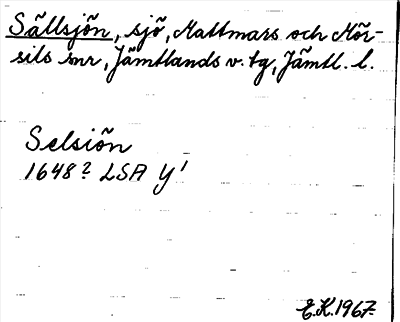 Sällsjön, sjö, Mattmars och Mör-
sils snr, Jämtlands v. tg, Jämtl. l.
Selsiön
1648? LSA Y¹
E.K. 1967.